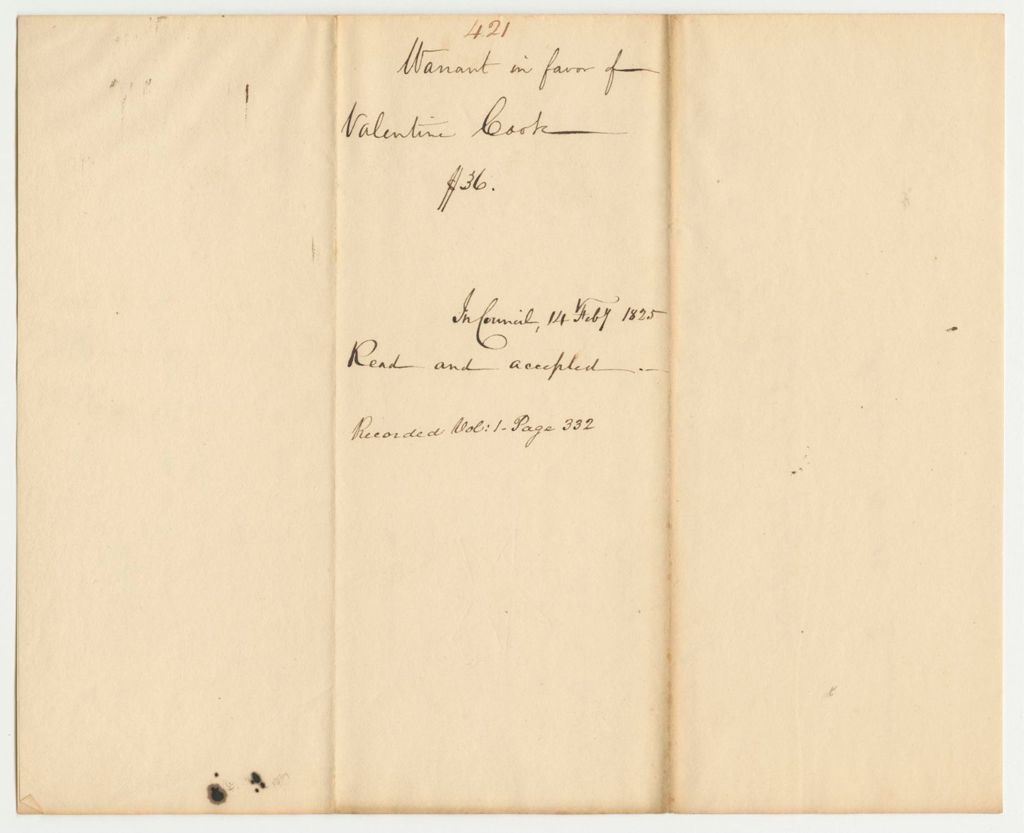 421
Warrant in favor of
Valentine Cook
$36.
In Council, 14 Feby 1825
Read and accepted
Recorded Vol: 1 - Page 332